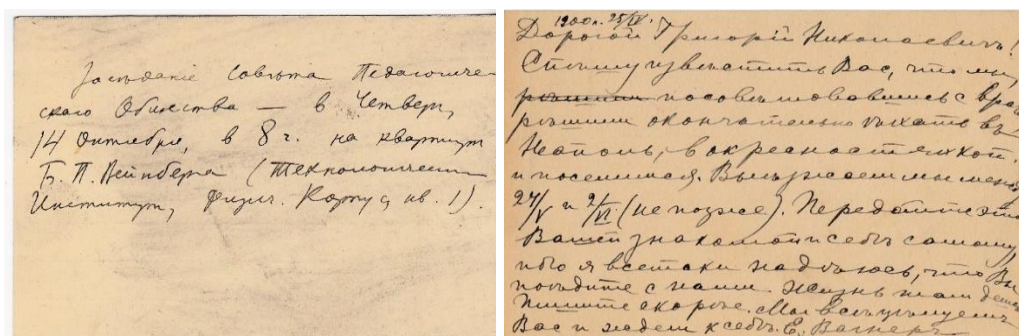 Засѣданіе Совѣта Педагогиче-
скаго Общества — в Четверг,
14 Октября, в 8 г. на квартире
Б. П. Вейнберга (Технологический
Институт, физич. Корпус, кв. 1).
1900 г. 25/IV.
Дорогой Григорій Николаевичъ!
Спѣшу извѣстить Васъ, что мы,
посовѣтовавшись с вра
рѣшили окончательно ѣхать въ
Неаполь, в окресностяхъ кот.
и поселимся. Выѣзжаем мы между
27/V и 2/VI (не позже). Передайте это
Вашей знакомой и себѣ самому,
ибо я всетаки надѣюсь, что Вы
поѣдите с нами. Жизнь там деш
Пишите скорѣе. Мы всѣ цѣлуем
Вас и ждем к себѣ. Е. Вагнеръ